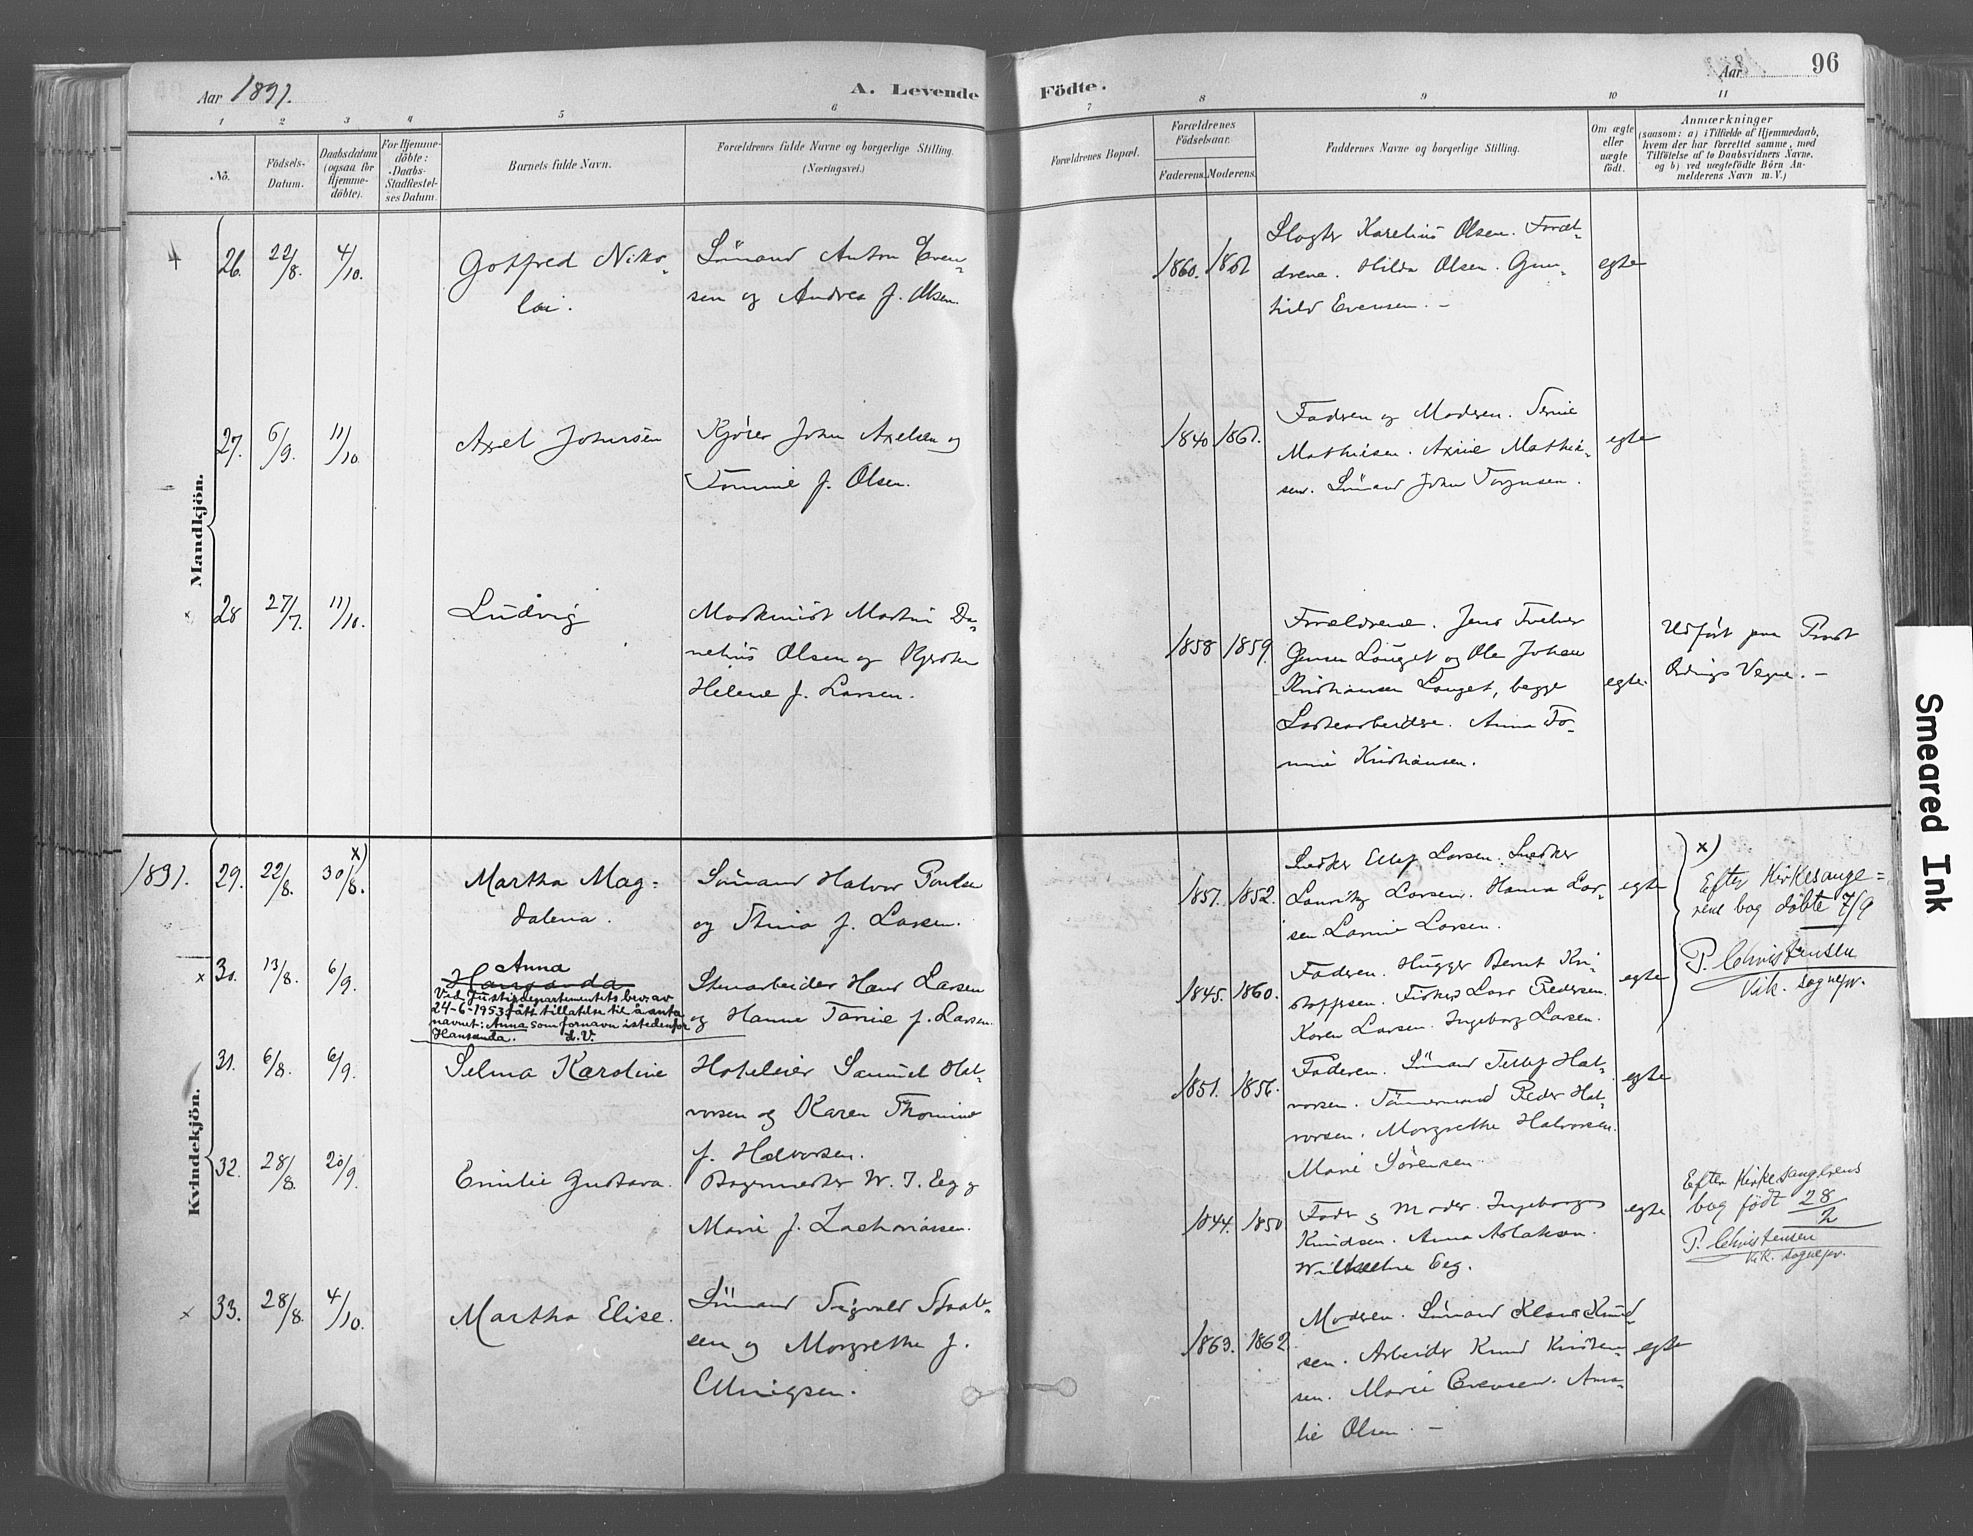 Aar 1891.
A. Levende Födte.
Aar
96
1 2 3 4 5 6 7 8 9 10 11
No.
Födsels-Datum.
Daabsdatum (ogsaa for Hjemme-döbte).
For Hjemme-döbte: Daabs-Stadfæstel-ses Datum.
Barnets fulde Navn.
Forældrenes fulde Navne og borgerlige Stilling. (Næringsvei.)
Forældrenes Bopæl.
Forældrenes Födselsaar.
Faderens. Moderens.
Faddernes Navne og borgerlige Stilling.
Om ægte eller uægte födt.
Anmærkninger
(saasom: a) i Tilfælde af Hjemmedaab,
hvem der har forrettet samme, med
Tilföielse af to Daabsvidners Navne,
og b) ved uægtefödte Börn An-
melderens Navn m. V.)
Mandkjön.
26. 22/8. 4/10.
Gotfred Niko-
lai.
Sömand Anton Even-
sen og Andrea f. Olsen.
1860.
Slagter Karelius Olsen. Foræl-
drene. Hilda Olsen. Gun-
hild Evensen. –
egte
27. 6/9. 11/10.
Axel Johnsen
Kjörer John Axelsen og
Tomine f. Olsen.
1840 1861.
Faderen og Moderen.
Mathisen. Mathi-
sen. Sömand John
egte
28 27/7. 11/10.
Ludvig
Maskinist Martin Da-
nelius Olsen og
Helene f. Larsen.
1858 1859.
Forældrene. Jens
Jensen Lauget og Ole Johan
Kristiansen Lauget, begge
Lastearbeidere. Anna To-
mine Kristiansen.
egte.
Udfört paa Provst
Vegne. –
1891.
Kvindekjön.
29. 22/8. 30/8. x)
Martha Mag-
dalena.
Sömand Halvor Poulsen
og Stina f. Larsen.
1851. 1852.
Snedker Ellef Larsen. Snedker
Lauritz Larsen. Hanna Lar-
sen. Larsen.
egte
x)
Efter Kirkesange-
rens bog döbte 7/9
P. Christensen
Vik. sognepr.
x 30. 13/8. 6/9.
Anna
Hansanda
Ved Justisdepartementets brev av
24-6-1953 fått tillatelse til å anta
navnet: Anna som fornavn istedenfor
Hansanda. d.V.
Stenarbeider Hans Larsen
og Hanne Tomine f. Larsen.
1845. 1860.
Faderen. Hugger Bernt Kri-
stoffersen. Fisker Lars Pedersen.
Karen Larsen. Ingeborg Larsen.
egte
31. 6/8. 6/9.
Selma Karoline
Hoteleier Samuel Hal-
vorsen og Karen Thomine
f. Halvorsen.
1851. 1856.
Faderen. Sömand Tellef Hal-
vorsen. Tömmermand Peder Hal-
vorsen. Margrethe Halvorsen.
Marie Sörensen
egte
32. 28/8. 20/9.
Emilie Gustava.
Bagermester W. J. Eeg og
Marie f. Zachariassen.
1844. 1850
Fader og Moder. Ingeborg
Knudsen. Anna Aslaksen.
Wilhelmine Eeg.
egte
Efter Kirkesangerens
bog födt 28/2
P. Christensen
Vik. sognepr.
x 33. 28/8. 4/10.
Martha Elise.
Sömand Sigvald
sen og Margrethe f.
Ellingsen.
1863. 1862.
Moderen. Sömand Klaus Knud-
sen. Arbeider Knud Knudsen-
sen. Marie Evensen. Ama-
lie Olsen. –
egte
Smeared Ink